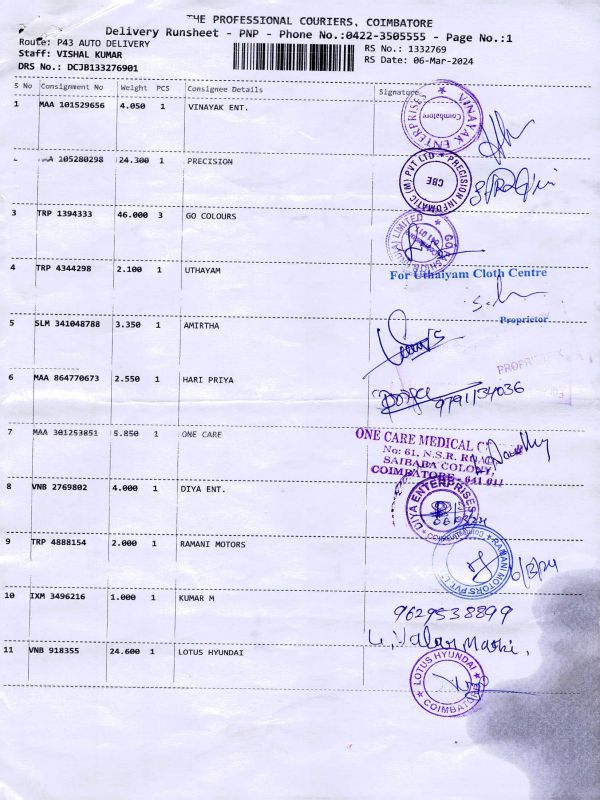 THE PROFESSIONAL COURIERS, COIMBATORE
Delivery Runsheet - PNP - Phone No.:0422-3505555 - Page No.:1
Route: P43 AUTO DELIVERY
RS No.: 1332769
Staff: VISHAL KUMAR
RS Date: 06-Mar-2024
DRS No.: DCJB133276901
S No Consignment No Weight PCS Consignee Details Signature
1 MAA 101529656 4.050 1 VINAYAK ENT.
VINAYAK ENTERPRISES Coimbatore
105280298 24.300 1 PRECISION
PRECISION INFOMATIC (M) PVT LTD CBE
3 TRP 1394333 46.000 3 GO COLOURS
LIMITED
4 TRP 4344298 2.100 1 UTHAYAM
For Uthaiyam Cloth Centre
Proprietor
5 SLM 341048788 3.350 1 AMIRTHA
6 MAA 864770673 2.550 1 HARI PRIYA
9791134036
7 MAA 301253851 5.850 1 ONE CARE
ONE CARE MEDICAL
No: 61, N.S.R. ROAD
SAIBABA COLONY
COIMBATORE - 641 011
8 VNB 2769802 4.000 1 DIYA ENT.
DIYA ENTERPRISES
9 TRP 4888154 2.000 1 RAMANI MOTORS
RAMANI MOTORS PVT. LTD
6/3/24
10 IXM 3496216 1.000 1 KUMAR M
9629538899
11 VNB 918355 24.600 1 LOTUS HYUNDAI
LOTUS HYUNDAI COIMBATORE